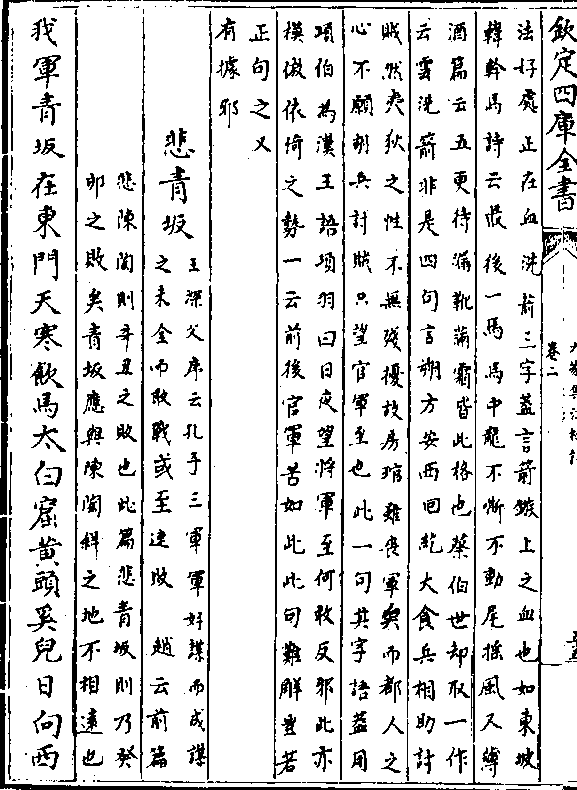 欽定四庫全書
卷二
法好處正在血洗箭三字蓋言箭鏃上之血也如東坡
韓幹馬詩云最後一馬馬中龍不嘶不動尾搖風又縛
酒篇云五更待漏靴滿霜皆此格也蔡伯世却取一作
云雪洗箭非是四句言朔方安西回紇大食兵相助討
賊然夷狄之性不無殘擾故房琯雖喪軍矣而都人之
心不願胡兵討賊只望官軍至也此一句其字語蓋用
項伯為漢王語項羽曰日夜望將軍至何敢反邪此亦
模倣依倚之勢一云前後官軍苦如此此句難解豈若
正句之又
有據邪
悲青坂
王深父序云孔子三軍軍好謀而成謀
之未全而敗戰或至速敗 趙云前篇
悲陳陶則辛丑之敗也此篇悲青坂則乃癸
卯之敗矣青坂應與陳陶斜之地不相遠也
我軍青坂在東門天寒飲馬太白窟黃頭奚兒日向西